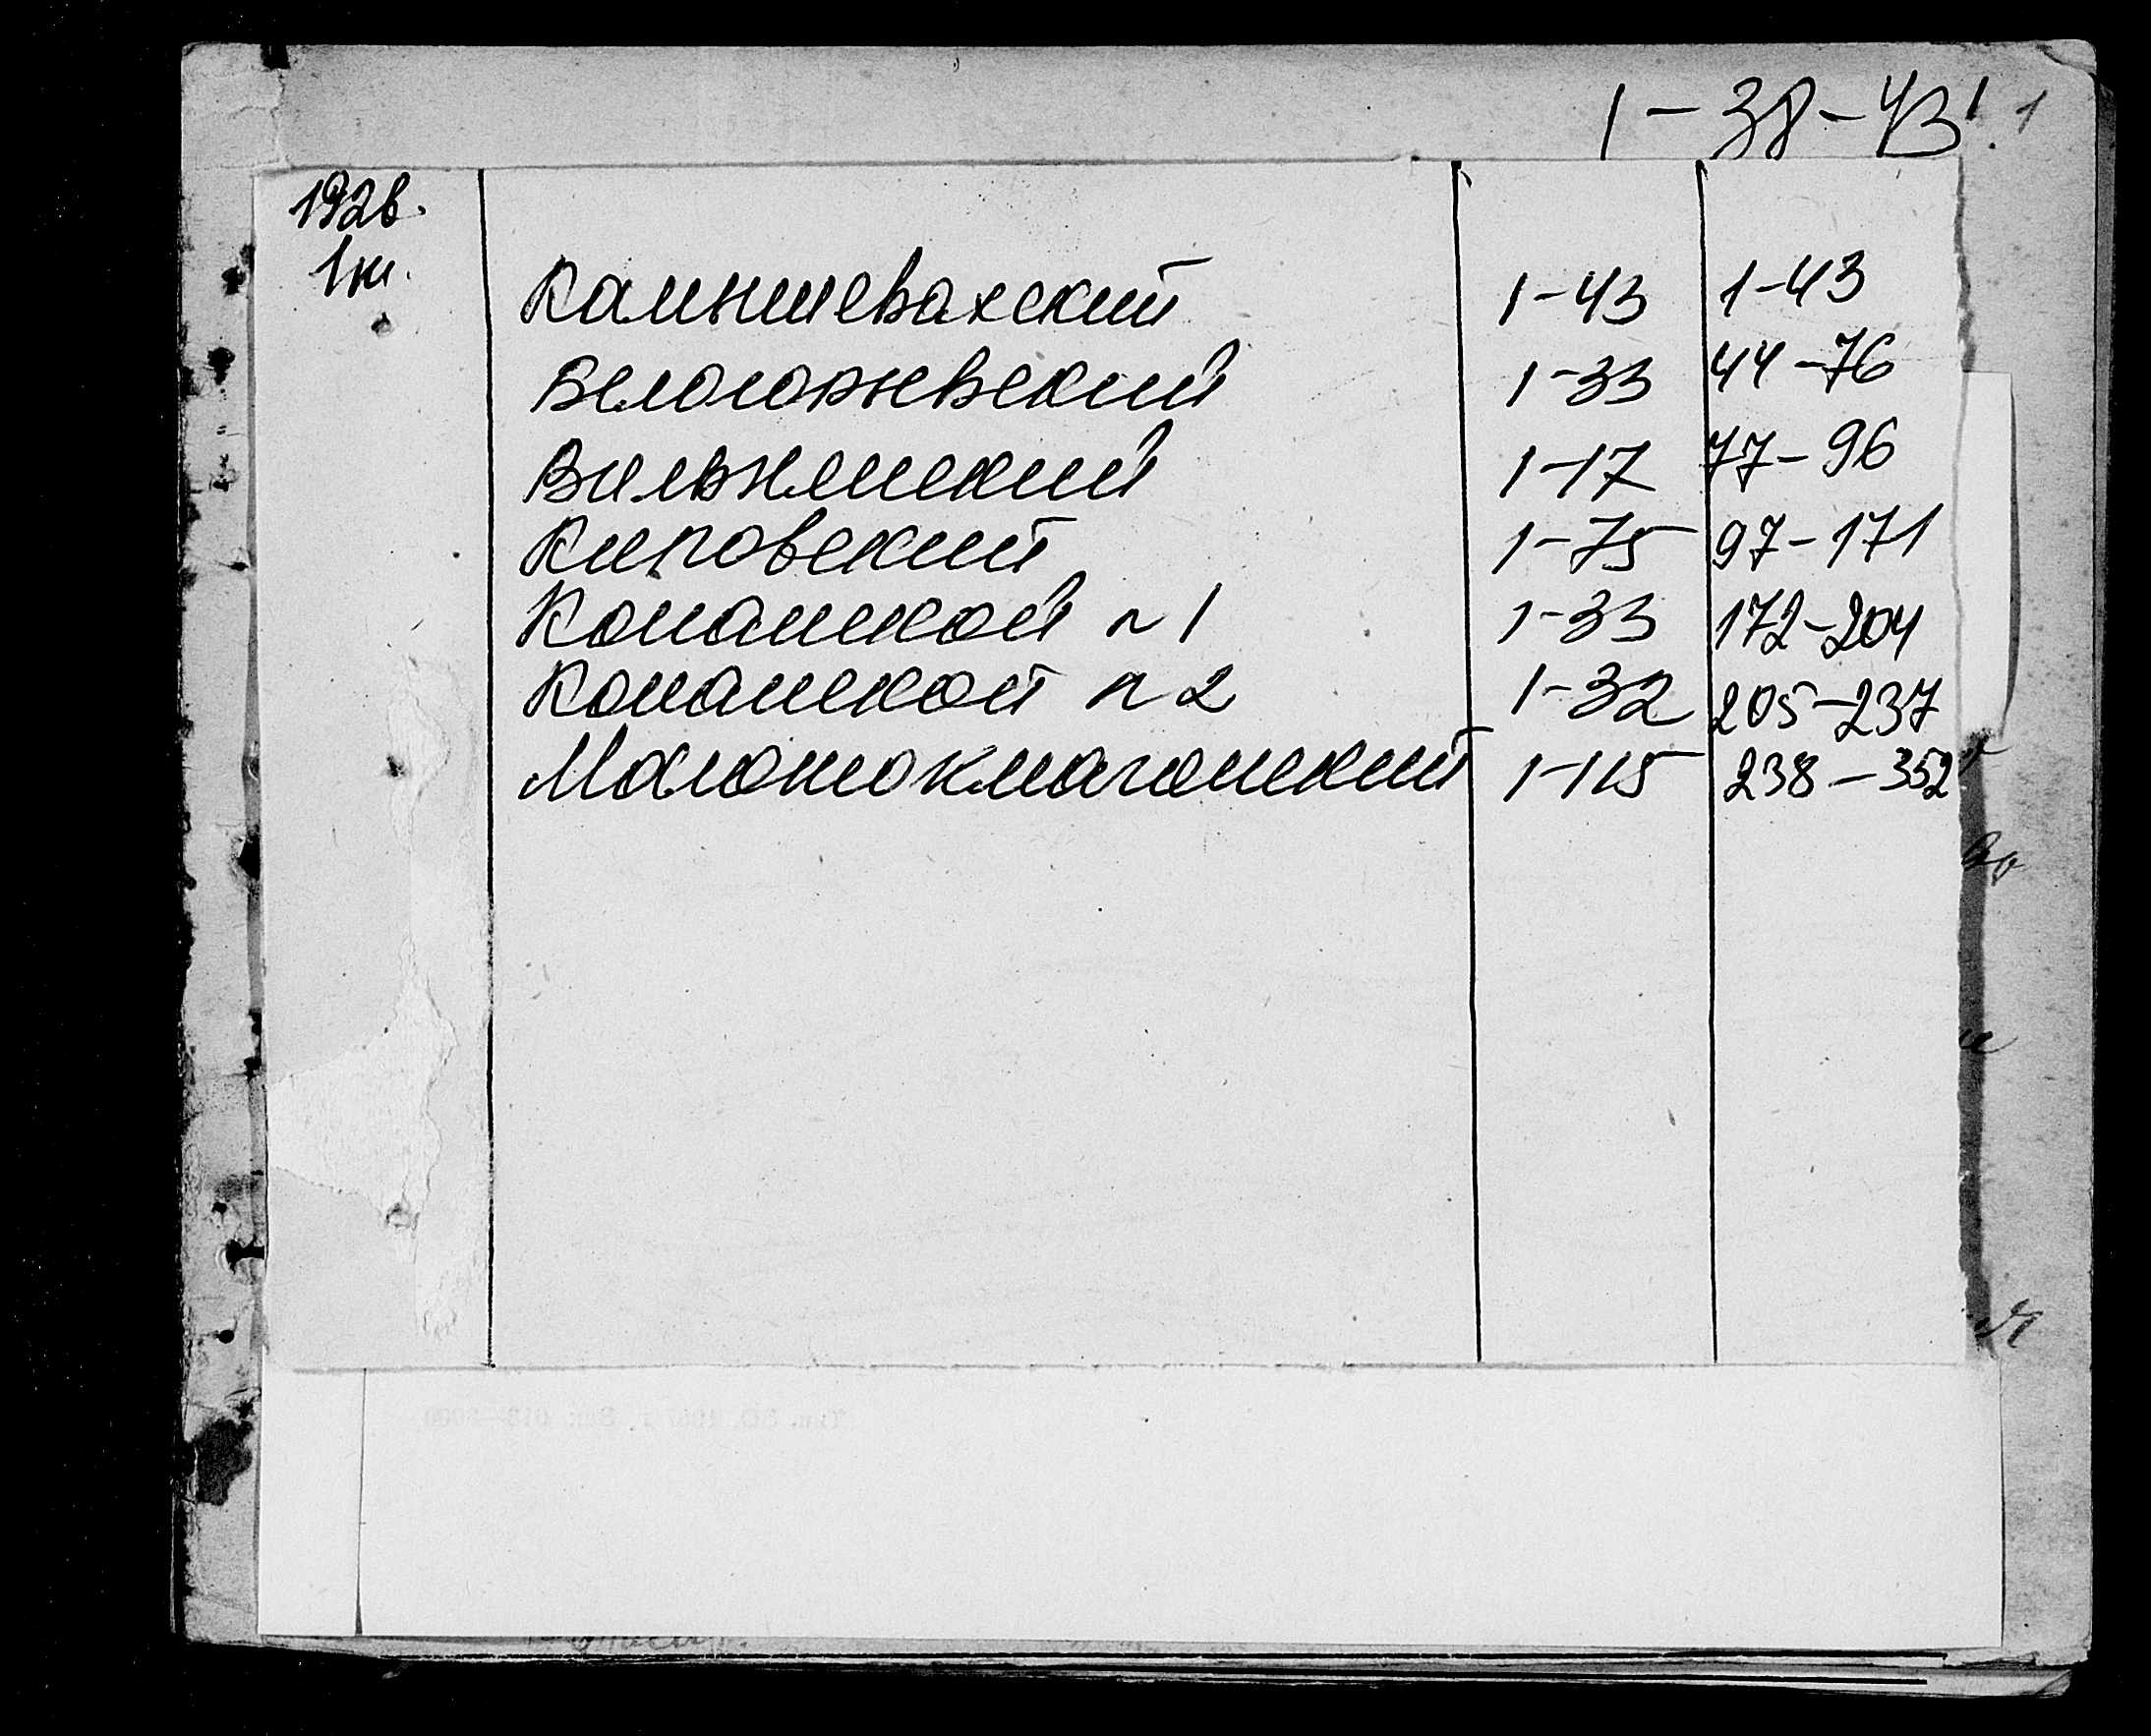 1-38-43 1
192в.
1кн.
Камышевахский 1-43 1-43
Белогорьевский 1-33 44-76
Вильямский 1-17 77-96
Кировский 1-75 97-171
Копанской n1 1-33 172-204
Копанской n2 1-32 205-237
Малотокмачанский 1-115 238-352